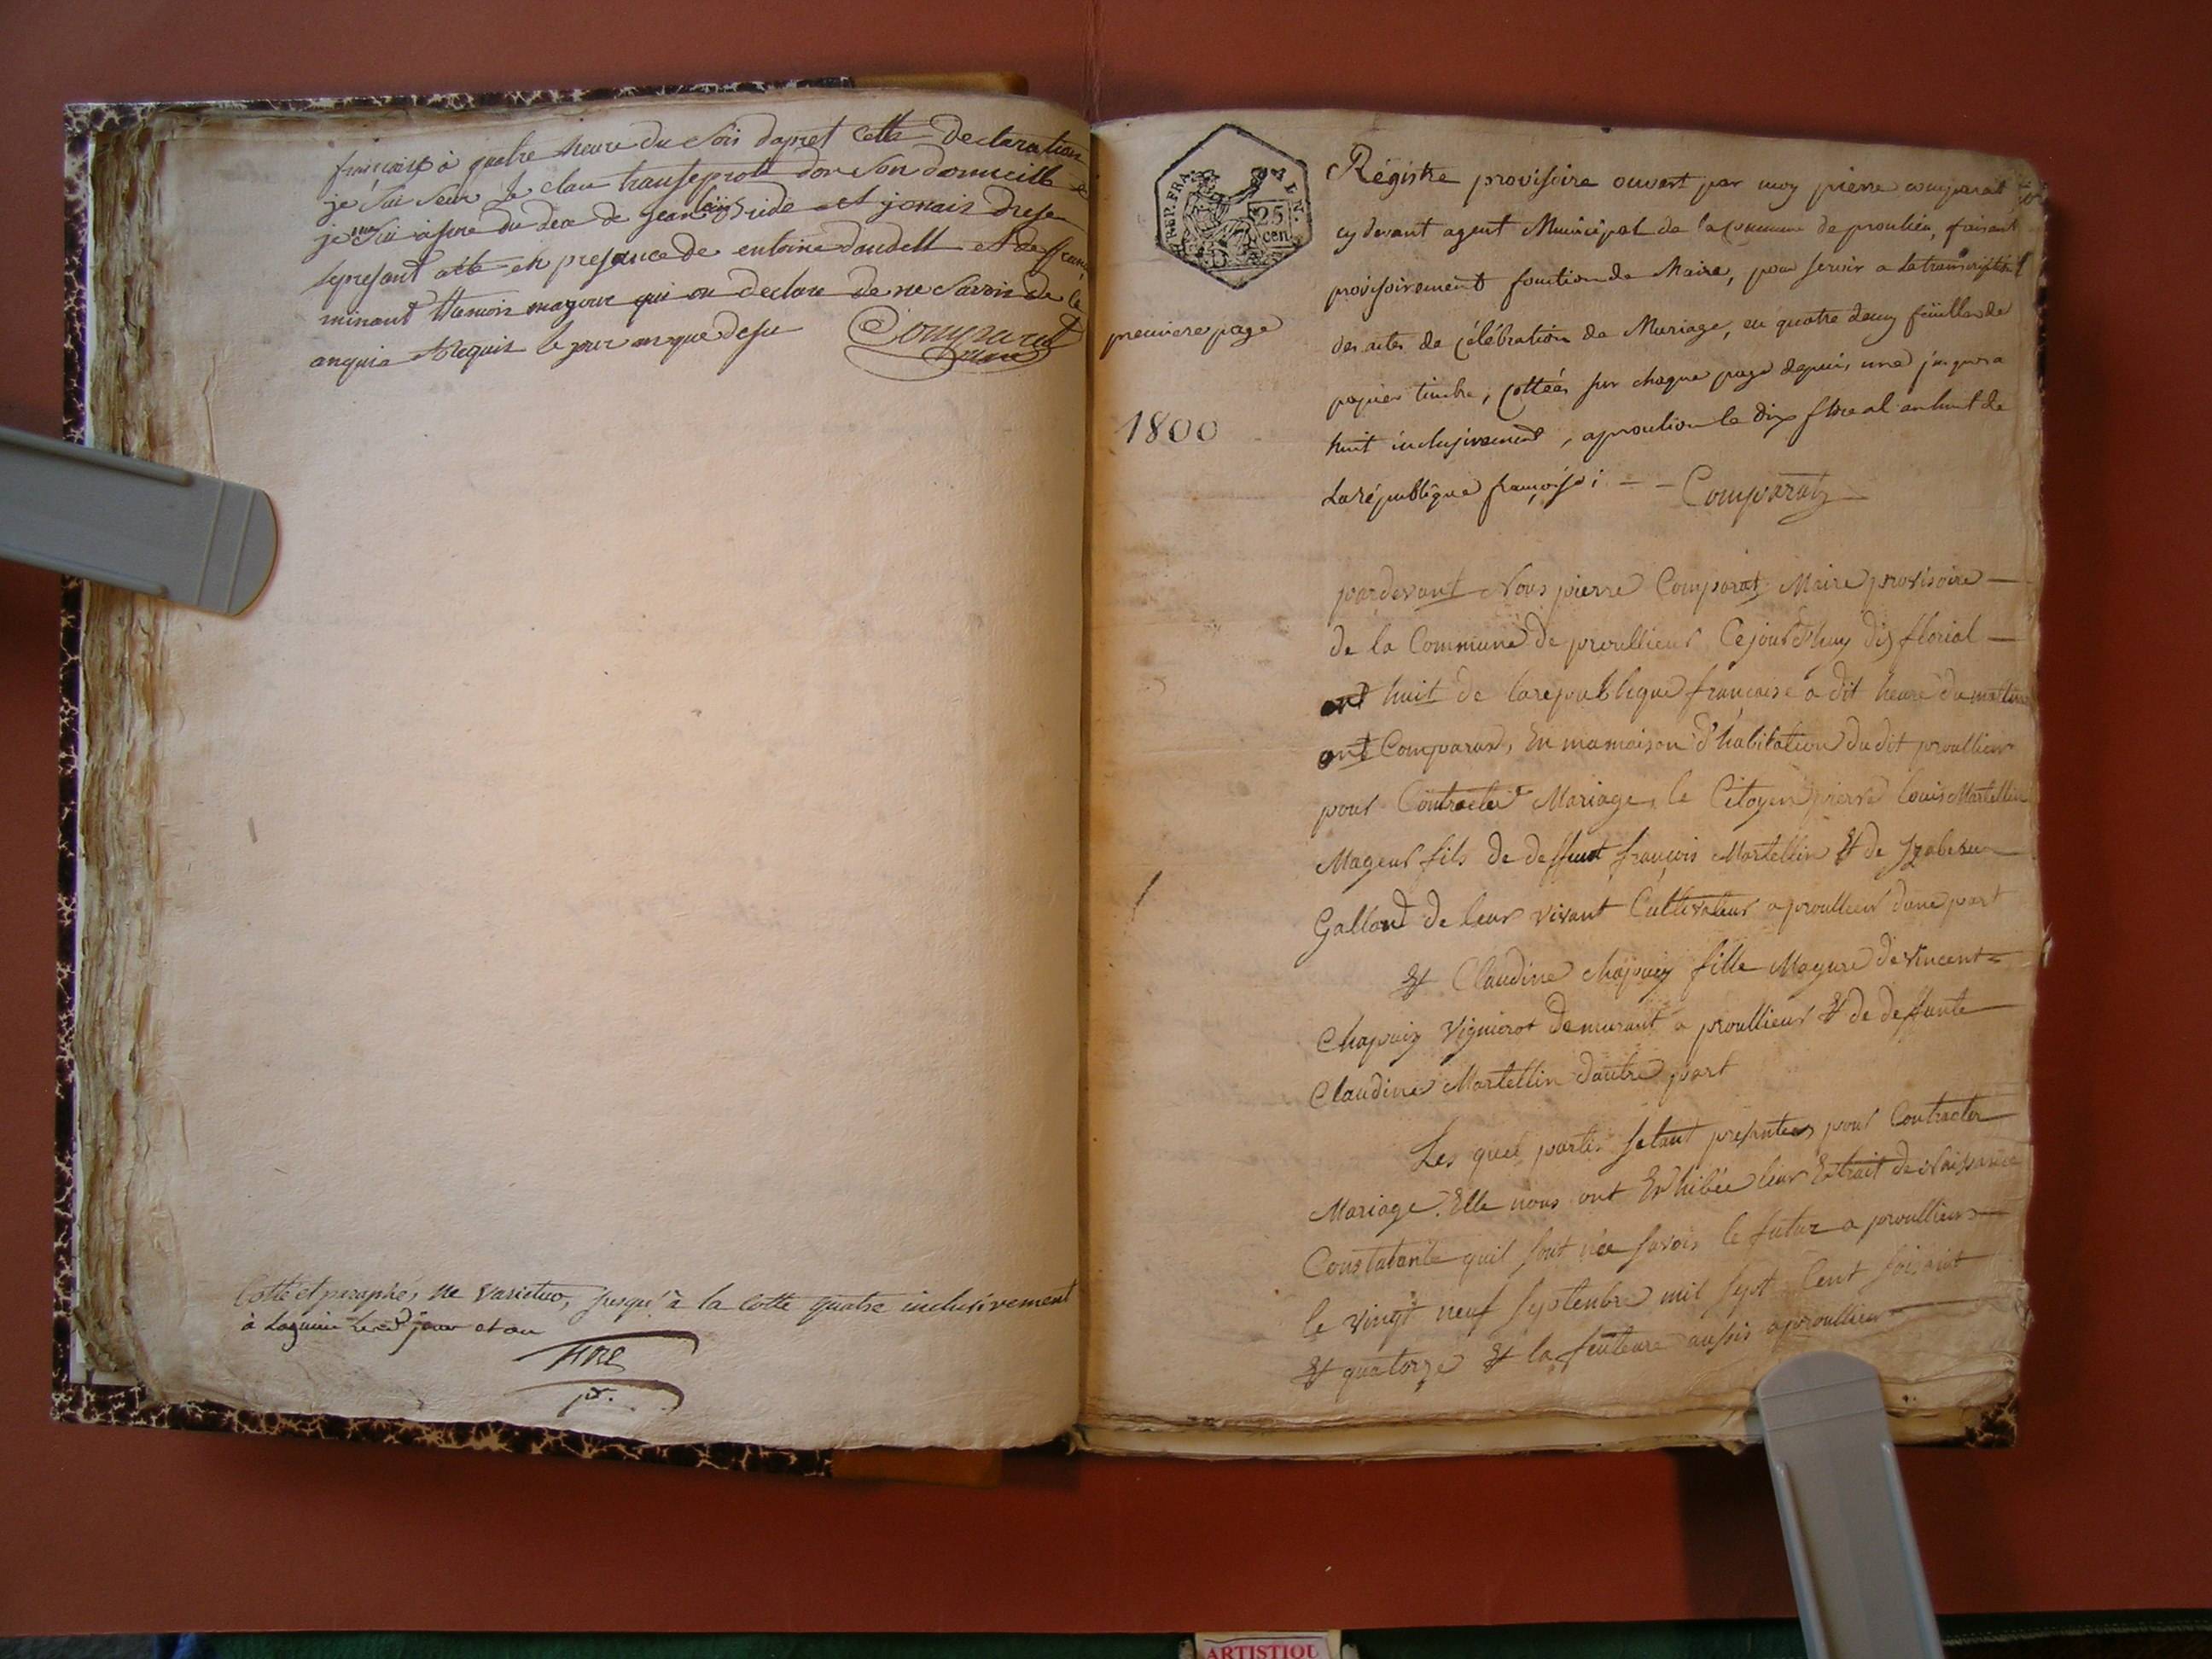 française à quatre heure du Soir dapret Cette declaration
je Sui dor Son domicille
je me Sui asure du de Jean et jenais drese
le presant acte en presance de entoine daudell et de
minant temoin mageure qui on declare de ne Savoir de ce
anquis et Requis le jour an que desu Comparat
maire
Cotté et paraphé, ne varietur, jusqu'à la Cotte quatre inclusivement
à Lagnieu les d. jour et an
REP. FRA
25
cen.
premiere page
1800
Régistre provisoire ouvert par moy pierre comparat
cy devant agent Municipal de la Commune de proulieu, faisant
provisoirement fonction de Maire, pour servir a la transcription
des actes de célébration de Mariage, en quatre demy feuilles de
papier timbre, Cottées sur chaque page depuis une jusques a
huit inclusivement, a proulieu le dix floreal an huit de
La république françoise; - - Comparat
pardevant Nous pierre Comparat Maire provisoire
de la Commune de proullieu Cejourdhuy dix florial
ant huit de larepublique française a dit heure du matin
ont Comparus, En mamaison d'habitation du dit proullieu
pour Contracter Mariage, le Citoyen pierre Louis Martellin
Mageur fils de deffunt françois Martellin & de Izabeau
Galland de leur vivant Cultivateur a proullieu dune part
& Claudine Chapuis fille Mageure de vincent
Chapuis Vigneron demurant a proullieu & de deffunte
Claudine Martellin dautre part
Les quel partis setant presantes pour Contracter
Mariage. Elle nous ont Exhibée leur Extrait de Naissance
Constatante quil sont née savoir le futur a proullieu
le vingt neuf septembre mil sept Cent soisant
& quatorze & la feuteure aussis a proullieu
ARTISTIQU